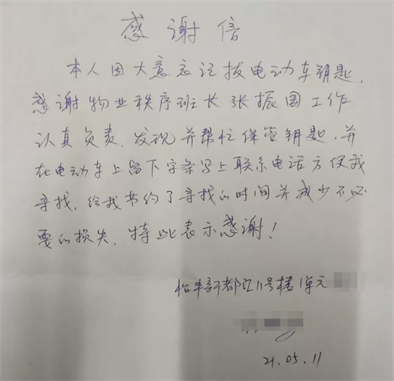 感谢信
本人因大意忘记拔电动车钥匙，
感谢物业秩序班长张振国工作
认真负责，发现并帮忙保管钥匙，并
在电动车上留下字条写上联系电话方便我
寻找，给我节约了寻找的时间并减少不必
要的损失，特此表示感谢！
怡丰新都汇11号楼1单元
21.05.11